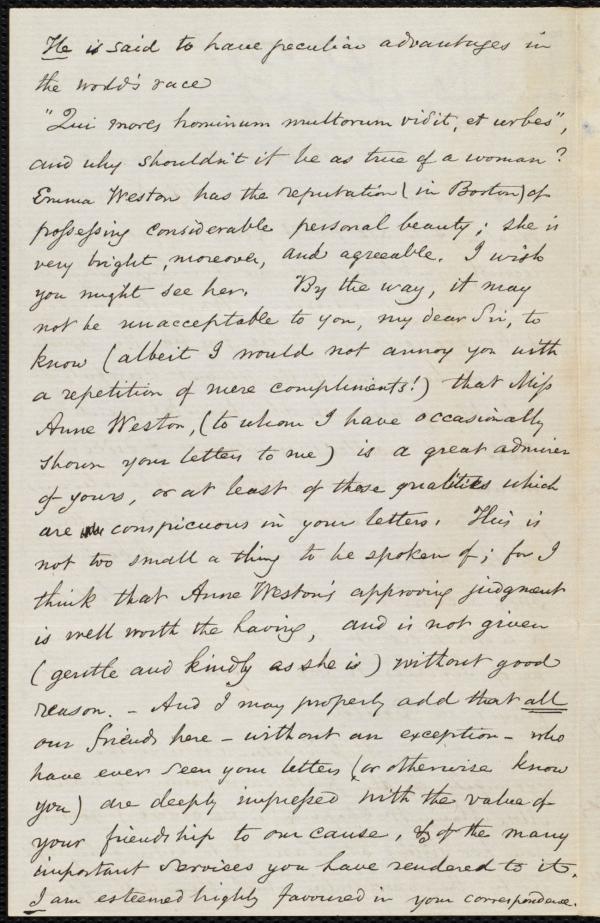 He is said to have peculiar advantages in
the world's race
"Qui mores hominum multorum vidit, et urbes",
and why shouldn't it be as true of a woman?
Emma Weston has the reputation (in Boston) of
possessing considerable personal beauty; she is
very bright, moreover, and agreeable. I wish
you might see her. By the way, it may
not be unacceptable to you, my dear Sir, to
know (albeit I would not annoy you with
a repetition of mere compliments!) that Miss
Anne Weston, (to whom I have occasionally
shown your letters to me) is a great admirer
of yours, or at least of those qualities which
are conspicuous in your letters. This is
not too small a thing to be spoken of; for I
think that Anne Weston's approving judgment
is well worth the having, and is not given
(gentle and kindly as she is) without good
reason. - And I may properly add that all
our friends here - without an exception - who
have ever seen your letters (or otherwise know
you) are deeply impressed with the value of
your friendship to our cause, & of the many
important services you have rendered to it.
I am esteemed highly favoured in your correspondence.